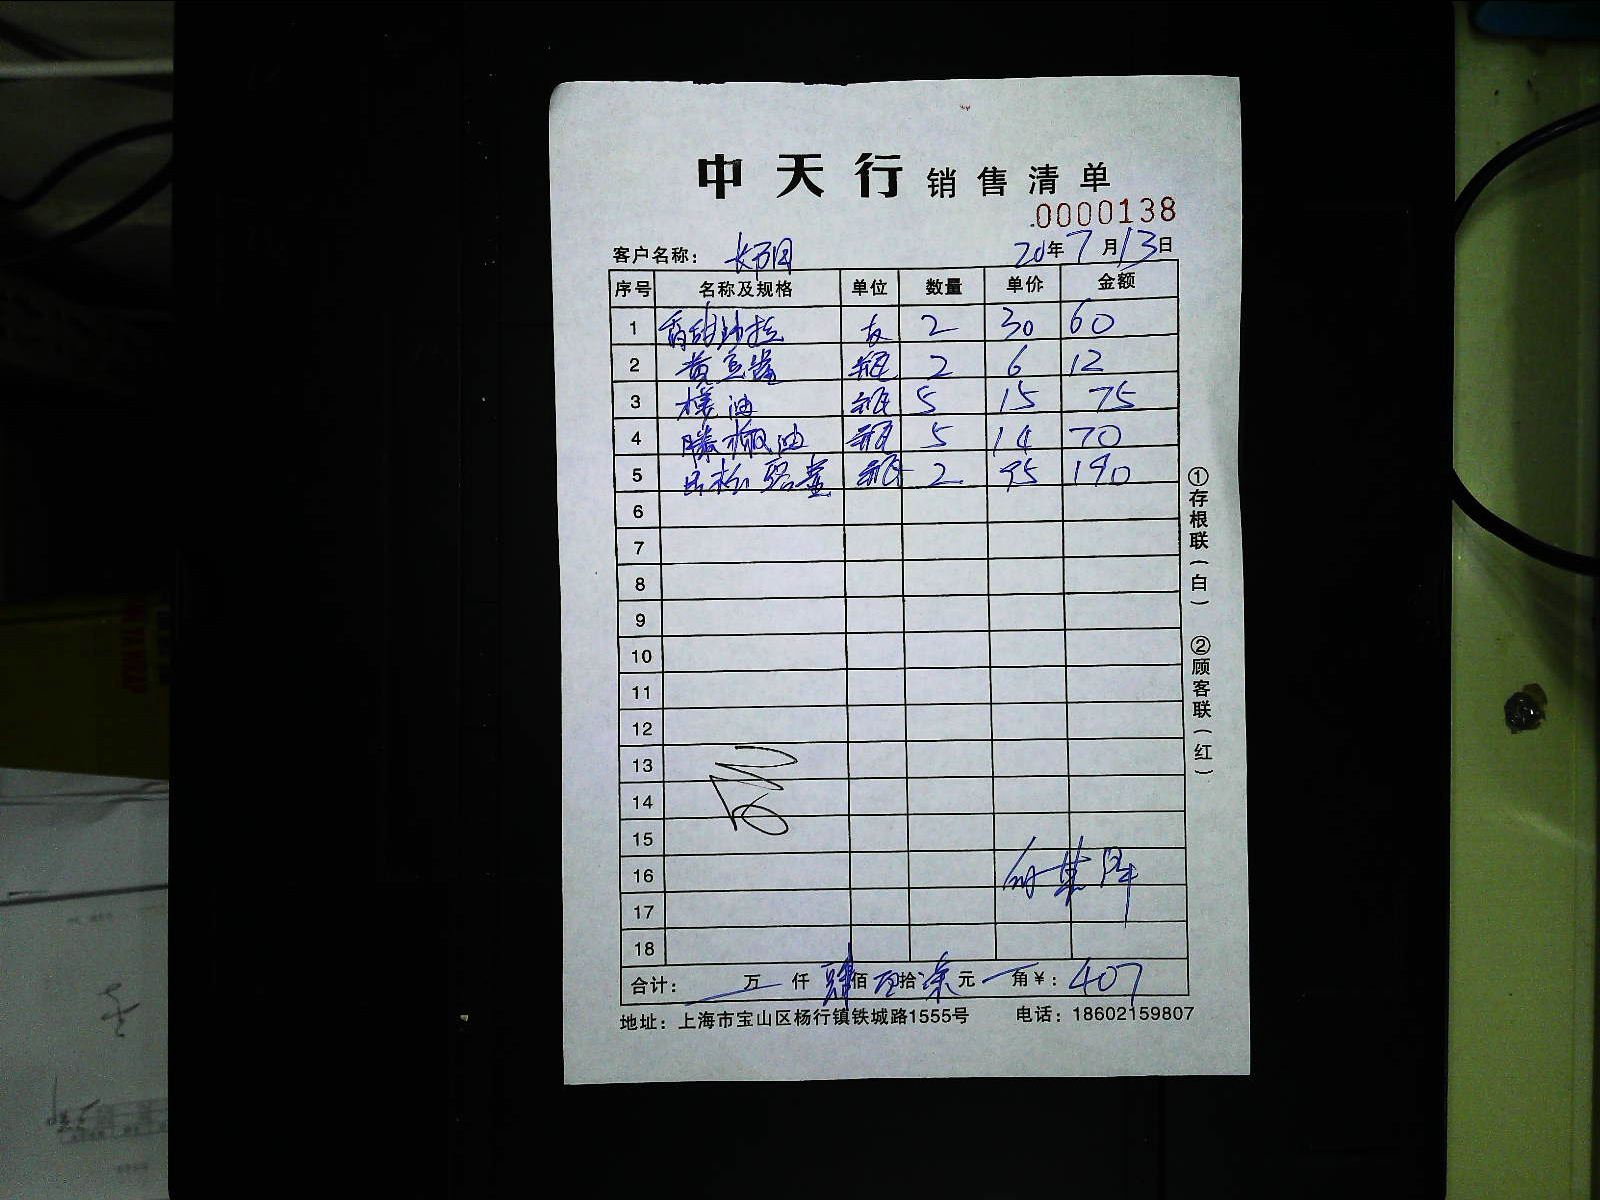 中天行 销售清单
.0000138
客户名称： 20年7月13日
序号 名称及规格 单位 数量 单价 金额
1 香甜沙拉 支 2 30 60
2 黄豆酱 瓶 2 6 12
3 辣油 瓶 5 15 75
4 藤椒油 瓶 5 14 70
5 瓶 2 95 190
6
7
8
9
10
11
12
13
14
15
16
17
18
合计： 万 仟 肆佰 零拾 柒元 角￥：407
地址：上海市宝山区杨行镇铁城路1555号 电话：18602159807
①存根联（白） ②顾客联（红）